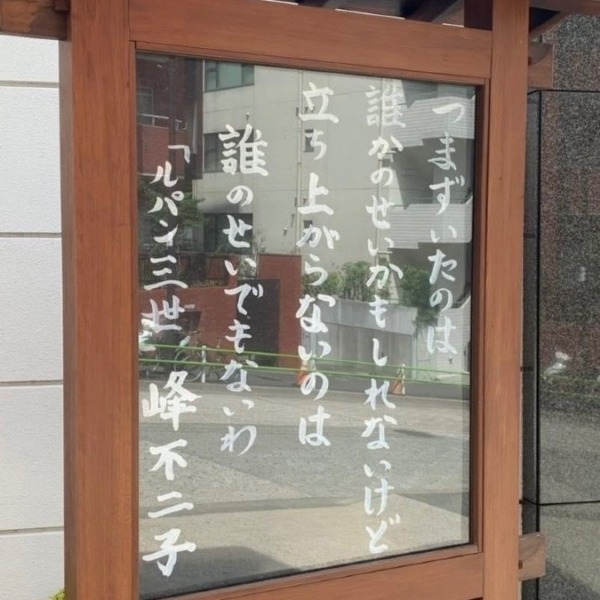 つまずいたのは
誰かのせいかもしれないけど
立ち上がらないのは
誰のせいでもないわ
「ルパン三世」峰不二子